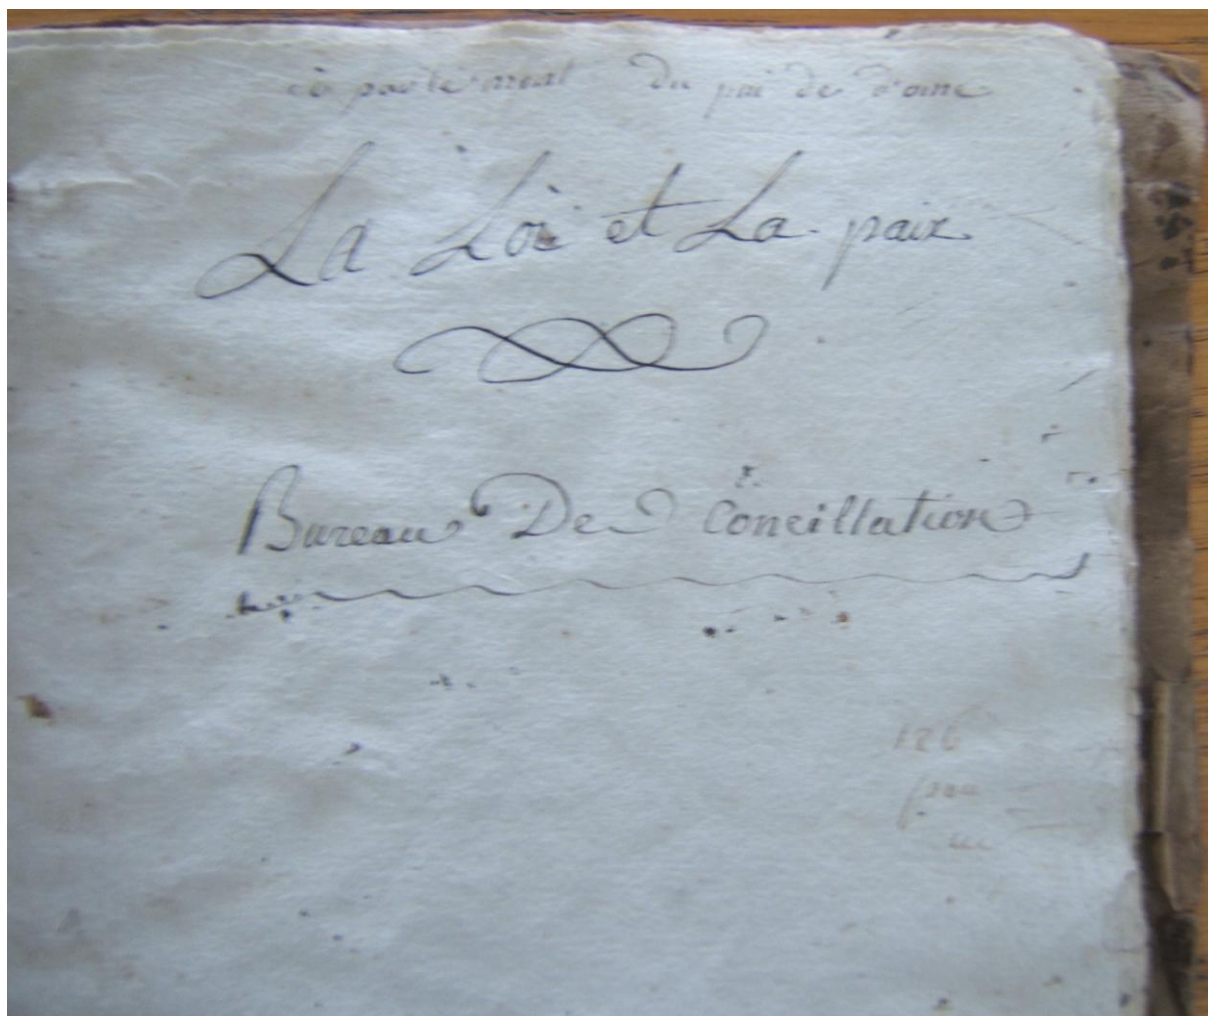 departement du pui de dome
La Loi et La paix
Bureau De Conciliation
126